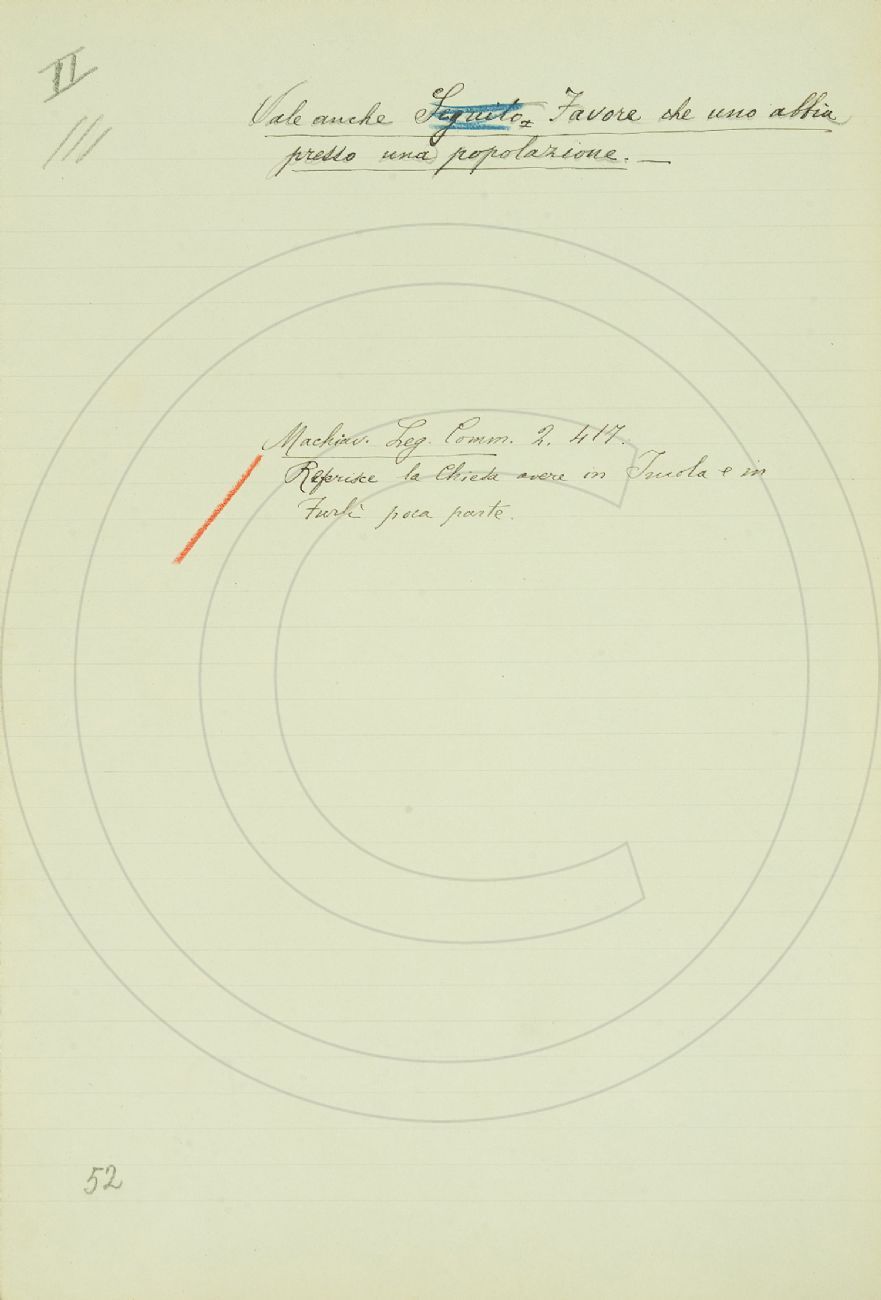 II
III
Vale anche Seguito, Favore che uno abbia
presso una popolazione. —
Machiav. Leg. Comm. 2. 417.
Referisce la Chiesa avere in Imola e in
Furlì poca parte.
52